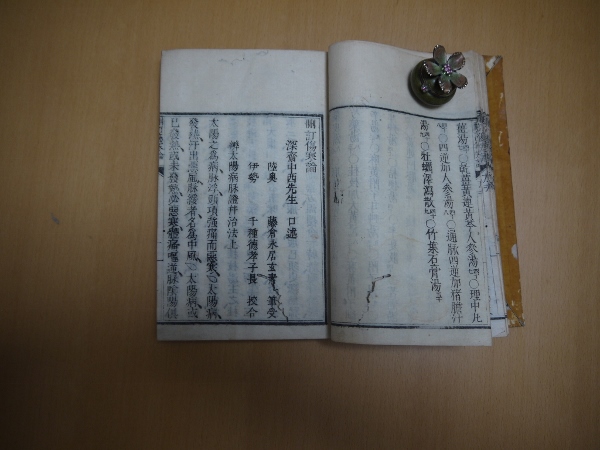 薑湯 〇乾姜黄連黄芩人参湯 〇理中丸
湯 〇四逆加人参湯 〇通脉四逆加猪膽汁
湯 〇牡蠣澤瀉散 〇竹葉石膏湯
傷寒論
深齋中西先生 口述
陸奥 藤倉永居玄
伊勢 千種德孝子長 校合
辨太陽病脉證并治法上
太陽之爲病脉浮頭項強痛而惡寒 太陽病或
發熱汗出惡風脉緩者名爲中風 太陽病或
已發熱或未發熱必惡寒體痛嘔逆脉陰陽俱